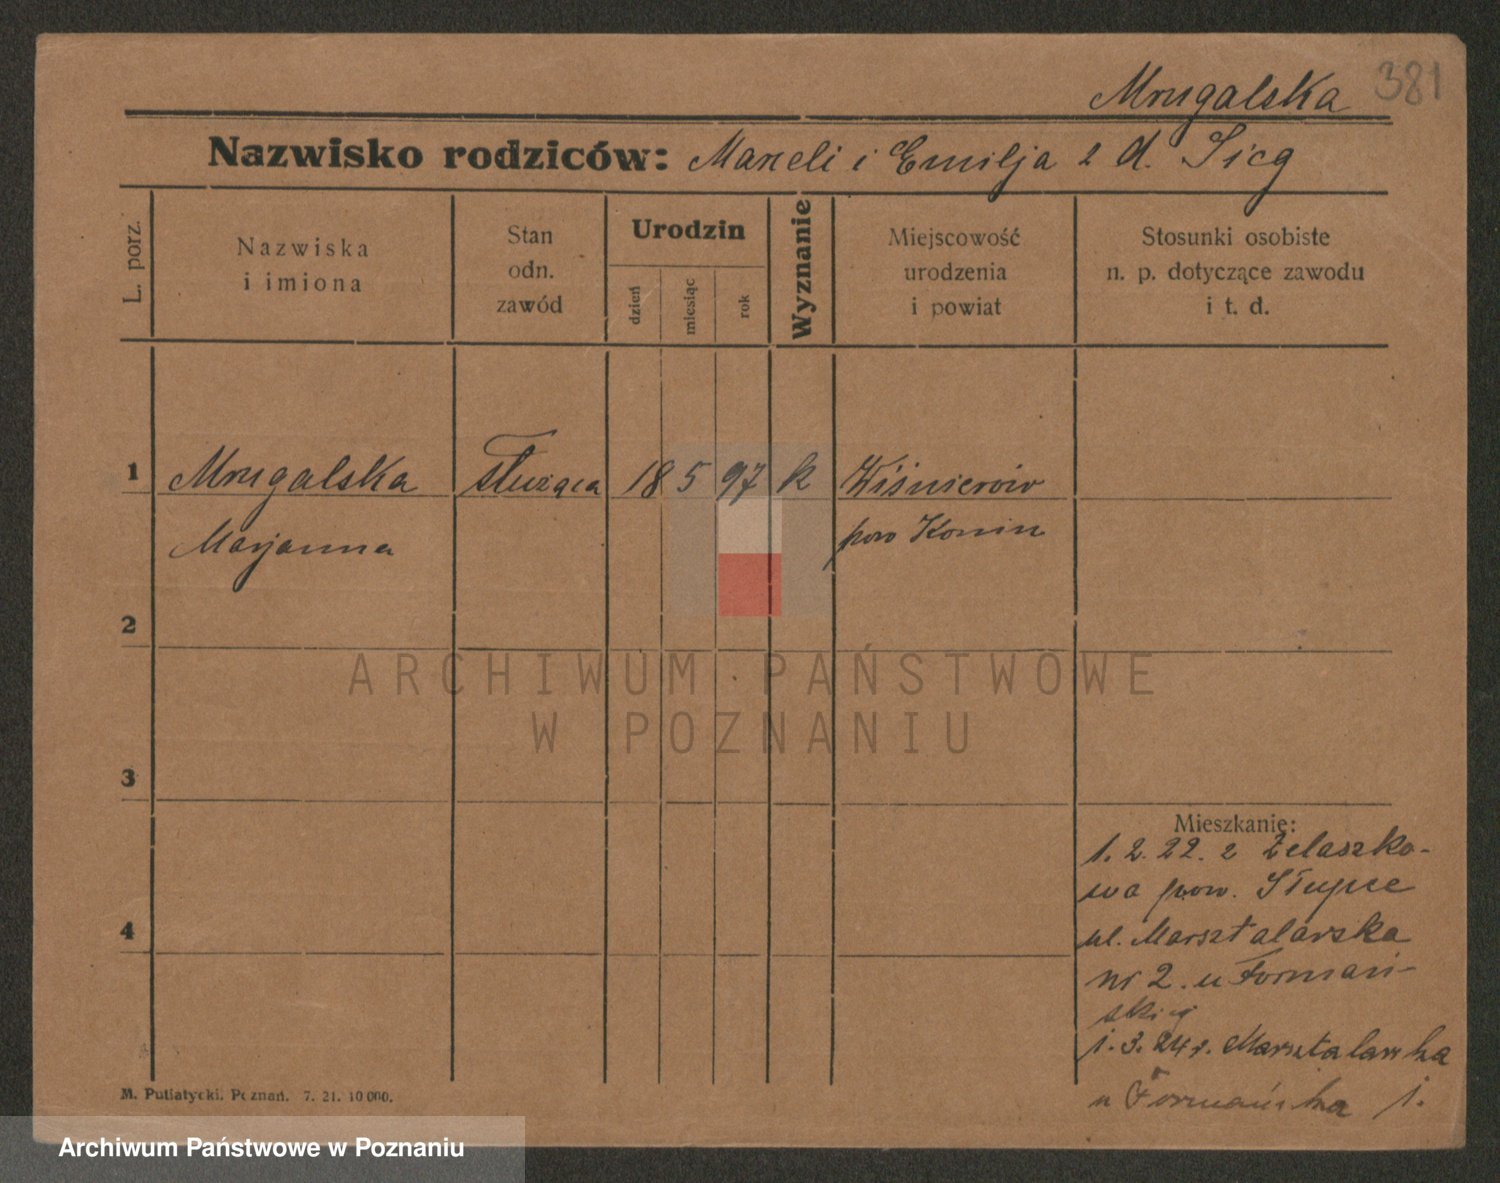 Mrugalska 381
Nazwisko rodziców: Marceli i Emilja z d. Sieg
L. porz.
Nazwiska
i imiona
Stan
odn.
zawód
Urodzin
dzień
miesiąc
rok
Wyznanie
Miejscowość
urodzenia
i powiat
Stosunki osobiste
n. p. dotyczące zawodu
i t. d.
1 Mrugalska służąca 18 5 97 k Wiśniewiw
Marjanna pow Konin
2
ARCHIWUM PAŃSTWOWE
W POZNANIU
3
Mieszkanie:
1. 2. 22. z Żelaszko-
wa pow. Słupce
4
ul. Marsztalarska
nr 2. u Formań-
skiej
1. 3. 24 r. Marsztalarska
u Formańska 1.
M. Putiatycki. Poznań. 7. 21. 10 000.
Archiwum Państwowe w Poznaniu